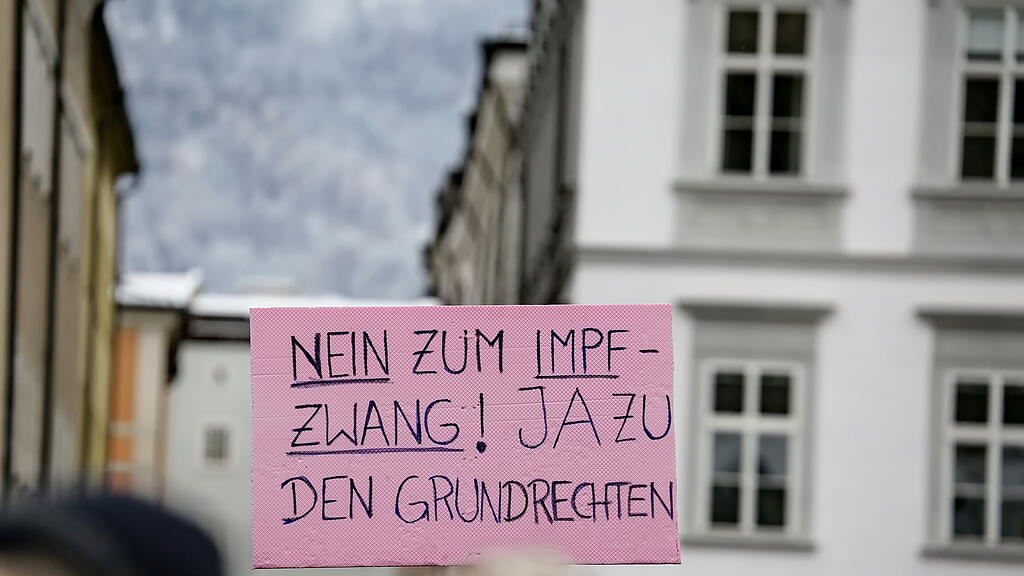 NEIN ZUM IMPF-
ZWANG! JA ZU
DEN GRUNDRECHTEN